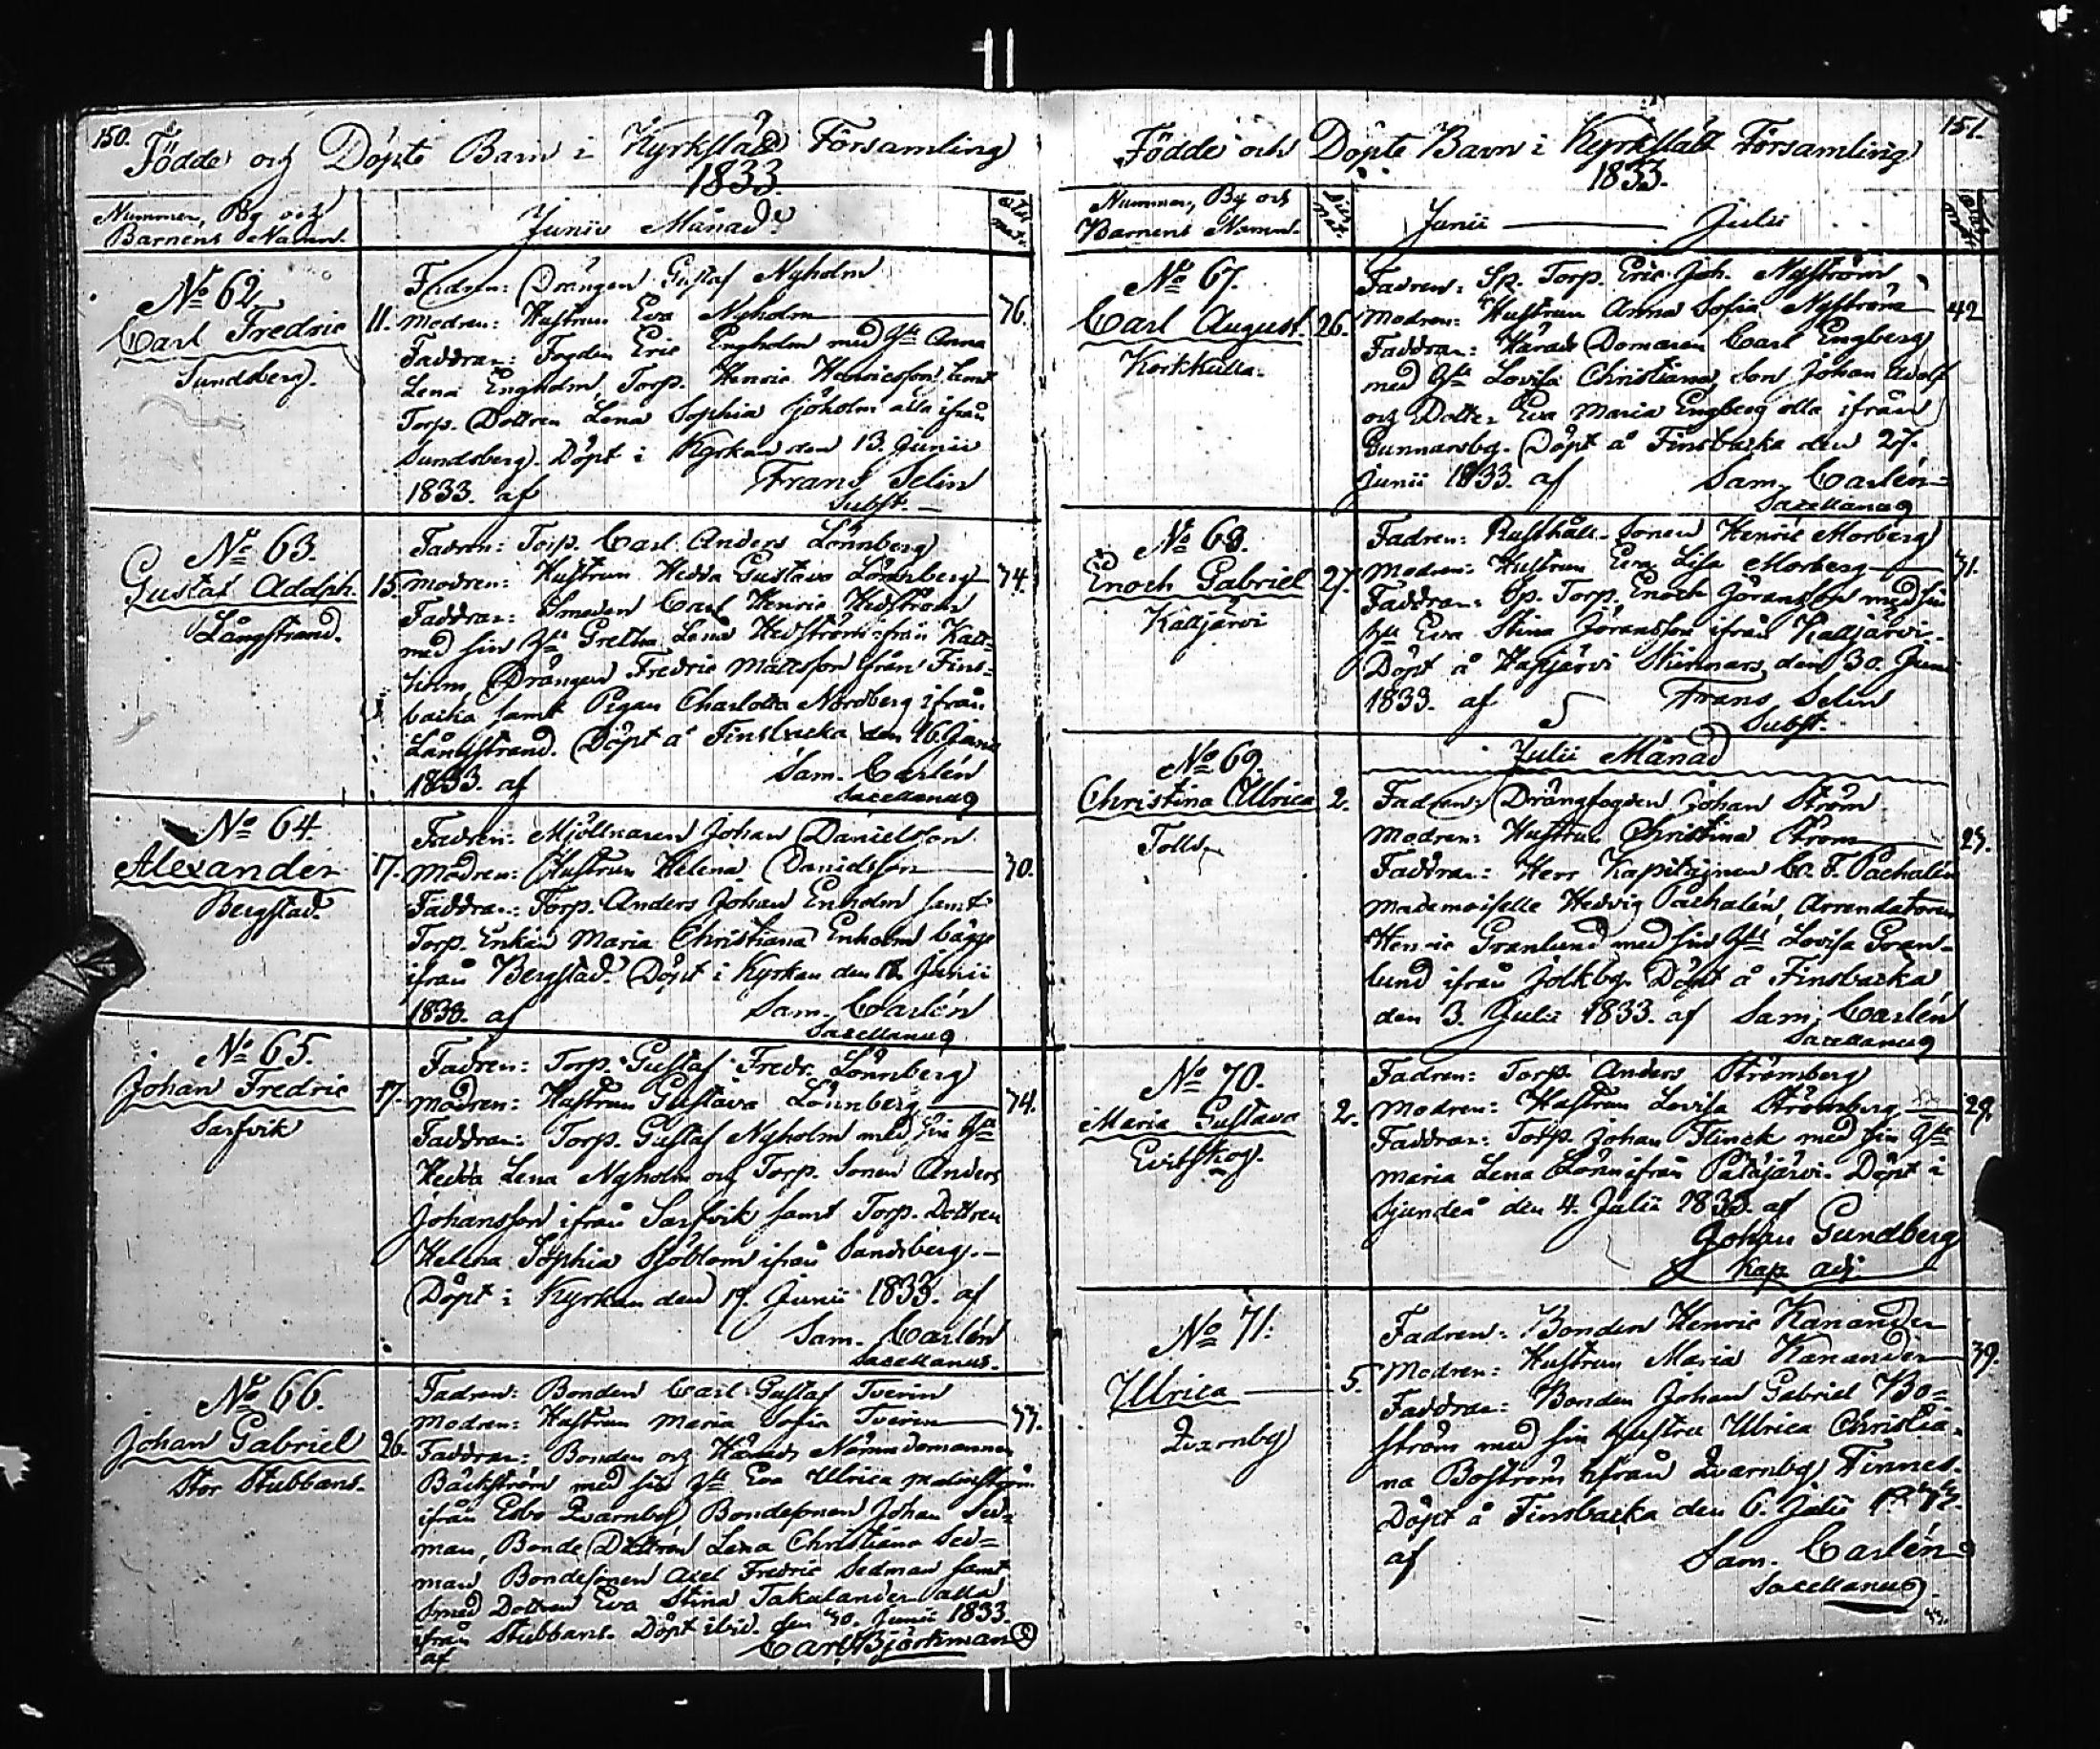 150.
Födde och Döpte Barn i Kyrkslätt Församling
1833.
Nummer, By och
Barnens Namn.
Junii Månad
N:o 62
Carl Fredric
Sundsberg.
11.
Fadren: Drängen Gustaf Nyholm
Modren: Hustrun Eva Nyholm
Faddrar: Fogden Eric Engholm med Anna
Lena Engholm, Torp. Henric Henricsson samt
Torp. Dottren Lena Sophia Sjöholm alla ifrån
Sundsberg. Döpt i Kyrkan den 13. Junii
1833. af Frans Selin
Subst.
N:o 63.
Gustaf Adolph.
Långstrand.
15.
Fadren: Torp. Carl Anders Lönnberg
Modren: Hustrun Hedda Gustava Lönnberg
Faddrar: Smeden Carl Henric Hedström
med sin Gretha Lena Hedström ifrån
Drängen Fredric Mattsson ifrån Fins-
backa samt Pigan Charlotta Nordberg ifrån
Långstrand. Döpt å Finsbacka den 16. Junii
1833. af Sam. Carlén
Sacellanus
N:o 64
Alexander
Bergstad.
17.
30.
Fadren: Mjöllnaren Johan Danielsson
Modren: Hustrun Helena Danielsson
Faddrar: Torp. Anders Johan Enholm samt
Torp. Enkan Maria Christiana Enholm bägge
ifrån Bergstad. Döpt i Kyrkan den Junii
1833. af Sam. Carlén
Sacellanus
N:o 65.
Johan Fredric
Sarfvik
17.
Fadren: Torp. Gustaf Fredr. Lönnberg
Modren: Hustrun Gustava Lönnberg
Faddrar: Torp. Gustaf Nyholm med sin
Hedda Lena Nyholm och Torp. Sonen Anders
Johansson ifrån Sarfvik samt Torp. Dottren
Helena Sophia Sjöblom ifrån Sundsberg.
Döpt i Kyrkan den 19. Junii 1833. af
Sam. Carlén
Sacellanus.
N:o 66.
Johan Gabriel
Stor Stubbans.
26.
Fadren: Bonden Carl Gustaf Tverin
Modren: Hustrun Maria Sofia Tverin
Faddrar: Bonden och Härads Nämndemannen
Bäckström med sin Eva Ulrica
ifrån Esbo Qvarnby Bondesonen Johan Sed=
man, Bonde Dottren Lena Christiana Sed=
man Bondesonen Axel Fredric Sedman samt
Smed Dottren Eva Stina Takalander alla
ifrån Stubbans. Döpt ibid. den 30. Junii 1833.
af Carl Björkman
151.
Födde och Döpte Barn i Kyrkslätt Församling
1833.
Nummer, By och
Barnens Namn.
Junii Julii
N:o 67.
Carl August.
Korkkulla.
26.
42
Fadren: Sp. Torp. Eric Joh. Nyström
Modren: Hustrun Anna Sofia Nyström
Faddrar: Härads Domaren Carl Engberg
med Lovisa Christiana, Son Johan Adolf
och Dotter Eva Maria Engberg alla ifrån
Gunnarsby. Döpt å Finsbacka den 27.
Junii 1833. af Sam. Carlén
Sacellanus
N:o 68.
Enoch Gabriel
Kalljärvi
27.
Fadren: Rusthåll. Sonen Henric Morberg
Modren: Hustrun Eva Lisa Morberg
Faddrar: Sp. Torp. Enoch Göransson med sin
Eva Stina Göransson ifrån Kalljärvi.
Döpt å Hapjärvi Skinnars den 30. Junii
1833. af Frans Selin
Subst.
N:o 69.
Christina Ulrica
Tolls
2.
Julii Månad
Fadren: Drängfogden Johan Ström
Modren: Hustrun Christina Ström
Faddrar: Herr Kapitajnen C. F. Pachalén
Mademoiselle Hedvig Pachalén, Arrendatoren
Henric Granlund med sin Lovisa Gran-
lund ifrån Jolkby. Döpt å Finsbacka
den 3. Julii 1833. af Sam. Carlén
Sacellanus
N:o 70.
Maria Gustava
Evitskog.
2.
29.
Fadren: Torp. Anders Strömberg
Modren: Hustrun Lovisa Strömberg
Faddrar: Torp. Johan Flinck med sin
Maria Lena Lönn ifrån Palajärvi. Döpt i
Sjundeå den 4. Julii 1833. af
Johan Gundberg
Kap. adj.
N:o 71.
Ulrica
Qvarnby
5.
39.
Fadren: Bonden Henric Kanander
Modren: Hustrun Maria Kanander
Faddrar: Bonden Johan Gabriel Bo=
ström med sin Hustru Ulrica Christia-
na Boström ifrån Qvarnby Finnes.
Döpt å Finsbacka den 6. Julii 1833.
af Sam. Carlén
Sacellanus.